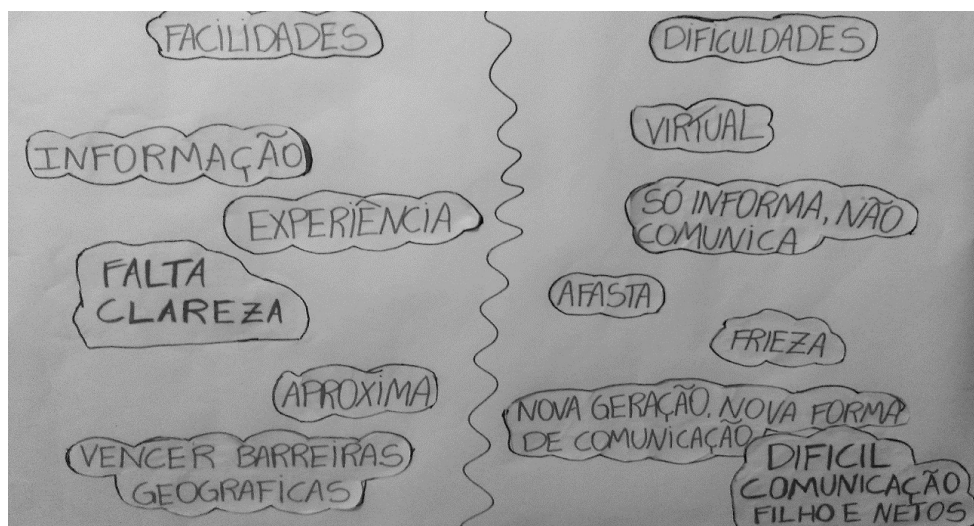 FACILIDADES
INFORMAÇÃO
EXPERIÊNCIA
FALTA
CLAREZA
APROXIMA
VENCER BARREIRAS
GEOGRAFICAS
DIFICULDADES
VIRTUAL
SÓ INFORMA, NÃO
COMUNICA
AFASTA
FRIEZA
NOVA GERAÇÃO. NOVA FORMA
DE COMUNICAÇÃO
DIFICIL
COMUNICAÇÃO
FILHO E NETOS